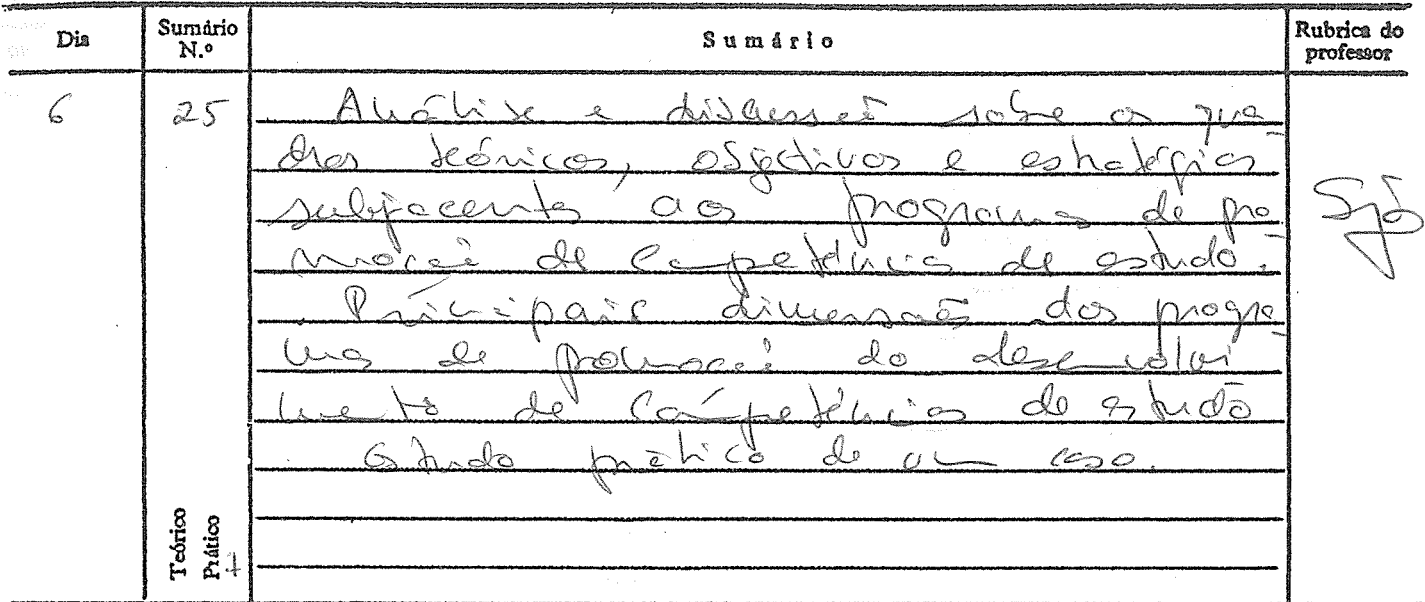 Dia Sumário N.º Sumário Rubrica do professor
6 25 . Análise e discussão sobre os qua-
dros teóricos, objectivos e estratégias
subjacentes aos programas de pro
moção de competências de estudo.
. Principais dimensões dos progra-
mas de promoção do desenvolvi
mento de competências de estudo
. Estudo prático de um caso.
Teórico
Prático +